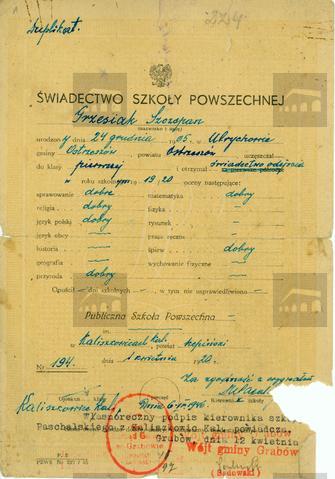 Duplikat.
ŚWIADECTWO SZKOŁY POWSZECHNEJ
Grzesiak Szczepan
(nazwisko i imię)
urodzony dnia 24 grudnia 1905. w Ulrychowie
gminy Ostrzeszów powiatu Ostrzeszów uczęszczał
do klasy pierwszej i otrzymał świadectwo odejścia
w roku szkolnym 1919/20 oceny następujące:
sprawowanie dobre matematyka dobry
religia dobry fizyka —
język polski dobry rysunek —
język obcy — praca ręczna —
historia — śpiew dobry
geografia — wychowanie fizyczne —
przyroda dobry
Opuścił — dni szkolnych —, w tym nie usprawiedliwiono —
Publiczna Szkoła Powszechna —
im.
w Kaliszkowicach Kal. powiat kępiński
Nr 194. kwietnia 1920 r.
Za zgodność z oryginałem
Opiekun klasy
Kierownik szkoły
Kaliszkowice Kal., dnia 1946
Własnoręczny podpis kierownika szkoły
Paschalskiego z Kaliszkowic Kal. poświadcza,
Grabów, dnia 12 kwietnia
Wójt gminy Grabów
(Sadowski)